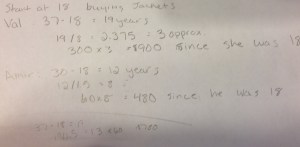 Start at 18 buying Jackets
Val 37-18 = 19 years
19/8 = 2.375 = 3 approx.
300 x 3 = $900 since she was 18
30-18 = 12 years
12/1.5 = 8
60x8 = 480 since he was 18
37-18 = 19